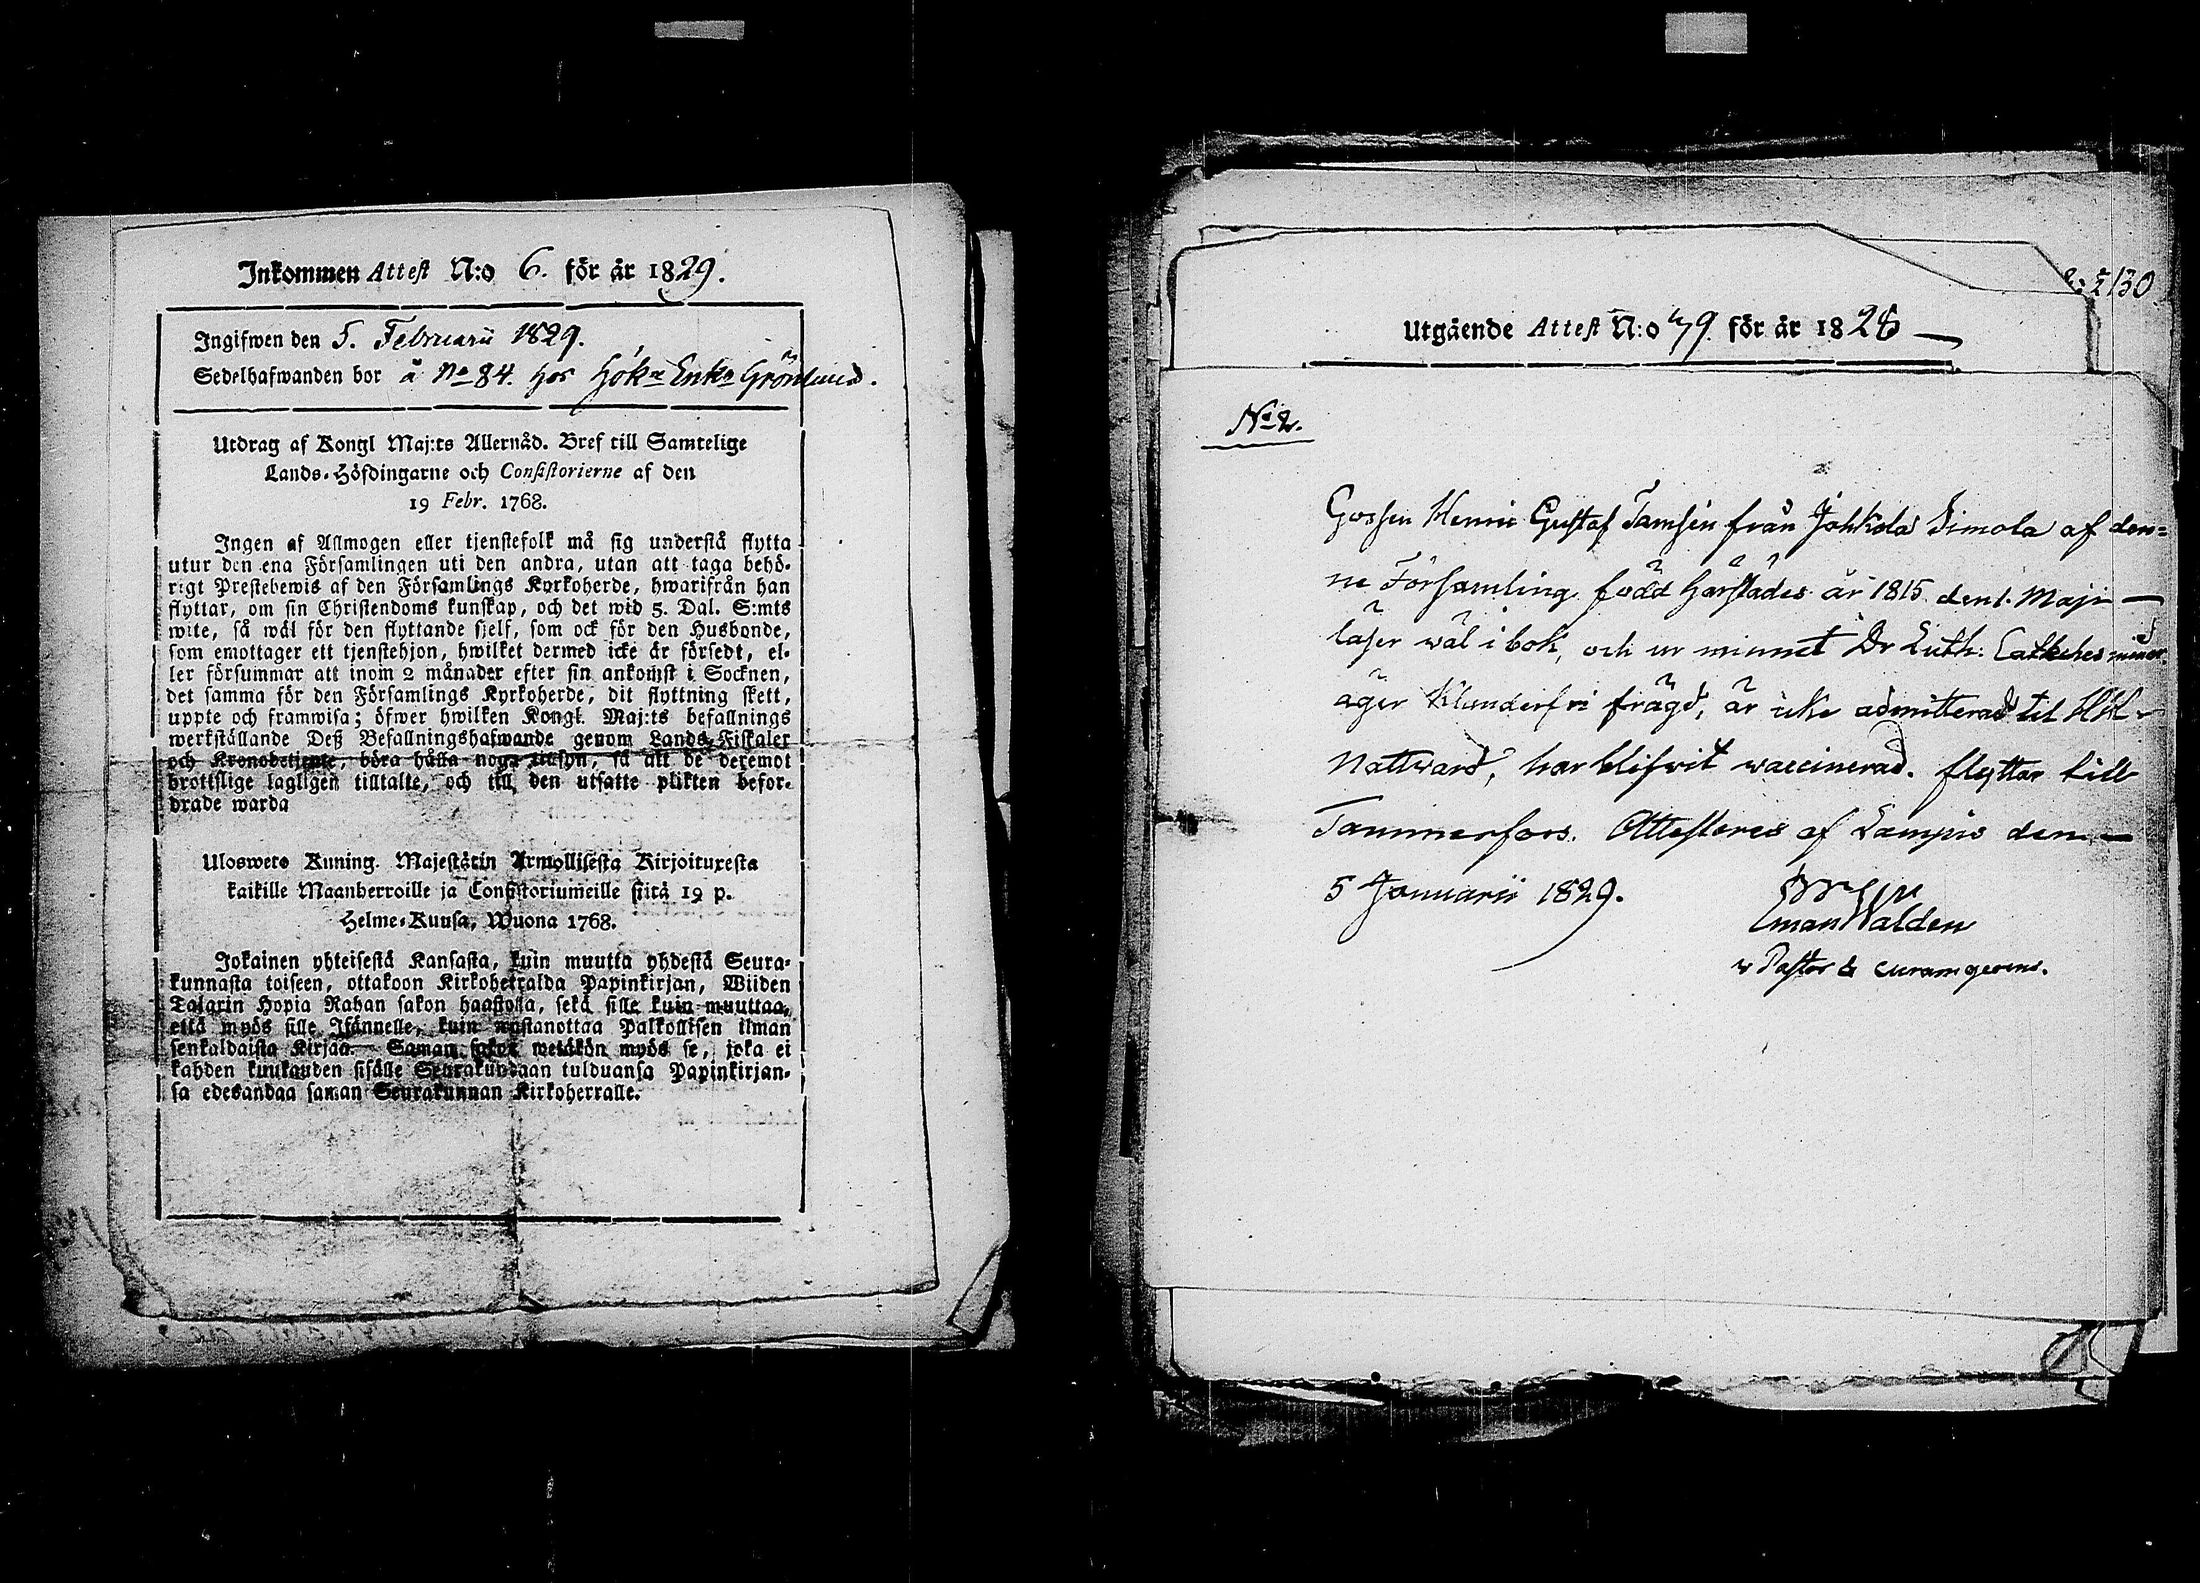 Inkommen Attest N:o 6. för år 1829.
Ingifwen den 5. Februarii 1829.
Sedelhafwanden bor å No 84. hos Hök. Enka Grönlund.
Utdrag af Kongl Maj:ts Allernåd. Bref till Samtelige
Lands-Höfdingarne och Consistorierne af den
19 Febr. 1768.
Ingen af Allmogen eller tjenstefolk må sig understå flytta
utur den ena Församlingen uti den andra, utan att taga behö-
rigt Prestebewis af den Församlings Kyrkoherde, hwarifrån han
flyttar, om sin Christendoms kunskap, och det wid 5. Dal. S:mts
wite, så wäl för den flyttande sjelf, som ock för den Husbonde,
som emottager ett tjenstehjon, hwilket dermed icke är försedt, el-
ler försummar att inom 2 månader efter sin ankomst i Socknen,
det samma för den Församlings Kyrkoherde, dit flyttning skett,
uppte och framwisa; öfwer hwilken Kongl. Maj:ts befallnings
werkställande Deß Befallningshafwande genom Lands-Fiskaler
och Kronobetjente, böra hålla noga tilsyn, så att de deremot
brottslige lagligen tilltalte, och till den utsatte plikten befor-
drade warda
Uloswete Kuning. Majestätin Armollisesta Kirjoituxesta
kaikille Maanherroille ja Consistoriumeille siitä 19 p.
Helme-Kuusa, Wuona 1768.
Jokainen yhteisestä Kansasta, kuin muutta yhdestä Seura-
kunnasta toiseen, ottakoon Kirkoherralda Papinkirjan, Wiiden
Talarin Hopia Rahan sakon haastolla, sekä sille kuin muuttaa,
että myös sille Isännelle, kuin wastanottaa Palkollisen ilman
senkaldaista Kirjaa. Saman sakon wetäkön myös se, joka ei
kahden kuukauden sisälle Seurakundaan tulduansa Papinkirjan-
sa edesandaa saman Seurakunnan Kirkoherralle.
Utgående Attest N:o 79. för år 1828
No 2.
Gossen Henric Gustaf Tamsén från Jahkola Simola af den=
ne Församling född härstädes år 1815 den 1. Maji
läser wäl i bok, och ur minnet Dr Luth: Cateches minor.
äger klanderfri frägd, är icke admitterad til HH
Nattward, har blifwit vaccinerad. flyttar till
Tammerfors. Attesteres af Lampis den
5 Januarii 1829.
Eman Walden
v Pastor & curam gerens.